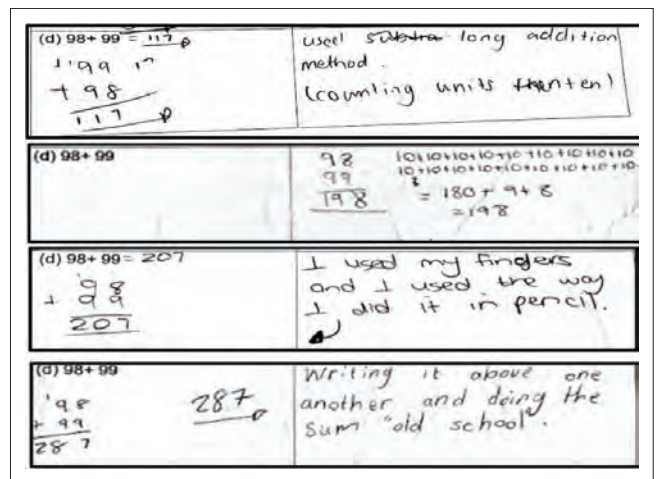 (d) 98+ 99 = 117
1 99 17
+ 98
117
used subtra long addition
method.
(counting units then ten)
(d) 98+ 99
98
99
198
10+10+10+10+10+10+10+10+10
10+10+10+10+10+10+10+10+10
= 180 + 9+ 8
= 198
(d) 98+ 99 = 207
98
+ 99
207
I used my fingers
and I used the way
I did it in pencil.
(d) 98+ 99
198
+ 99
287
287
Writing it above one
another and doing the
sum "old school".